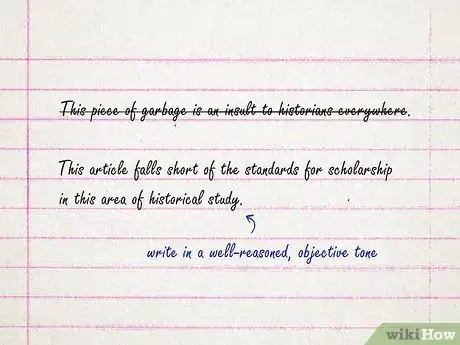 This piece of garbage is an insult to historians everywhere.
This article falls short of the standards for scholarship
in this area of historical study.
write in a well-reasoned, objective tone
wikiHow